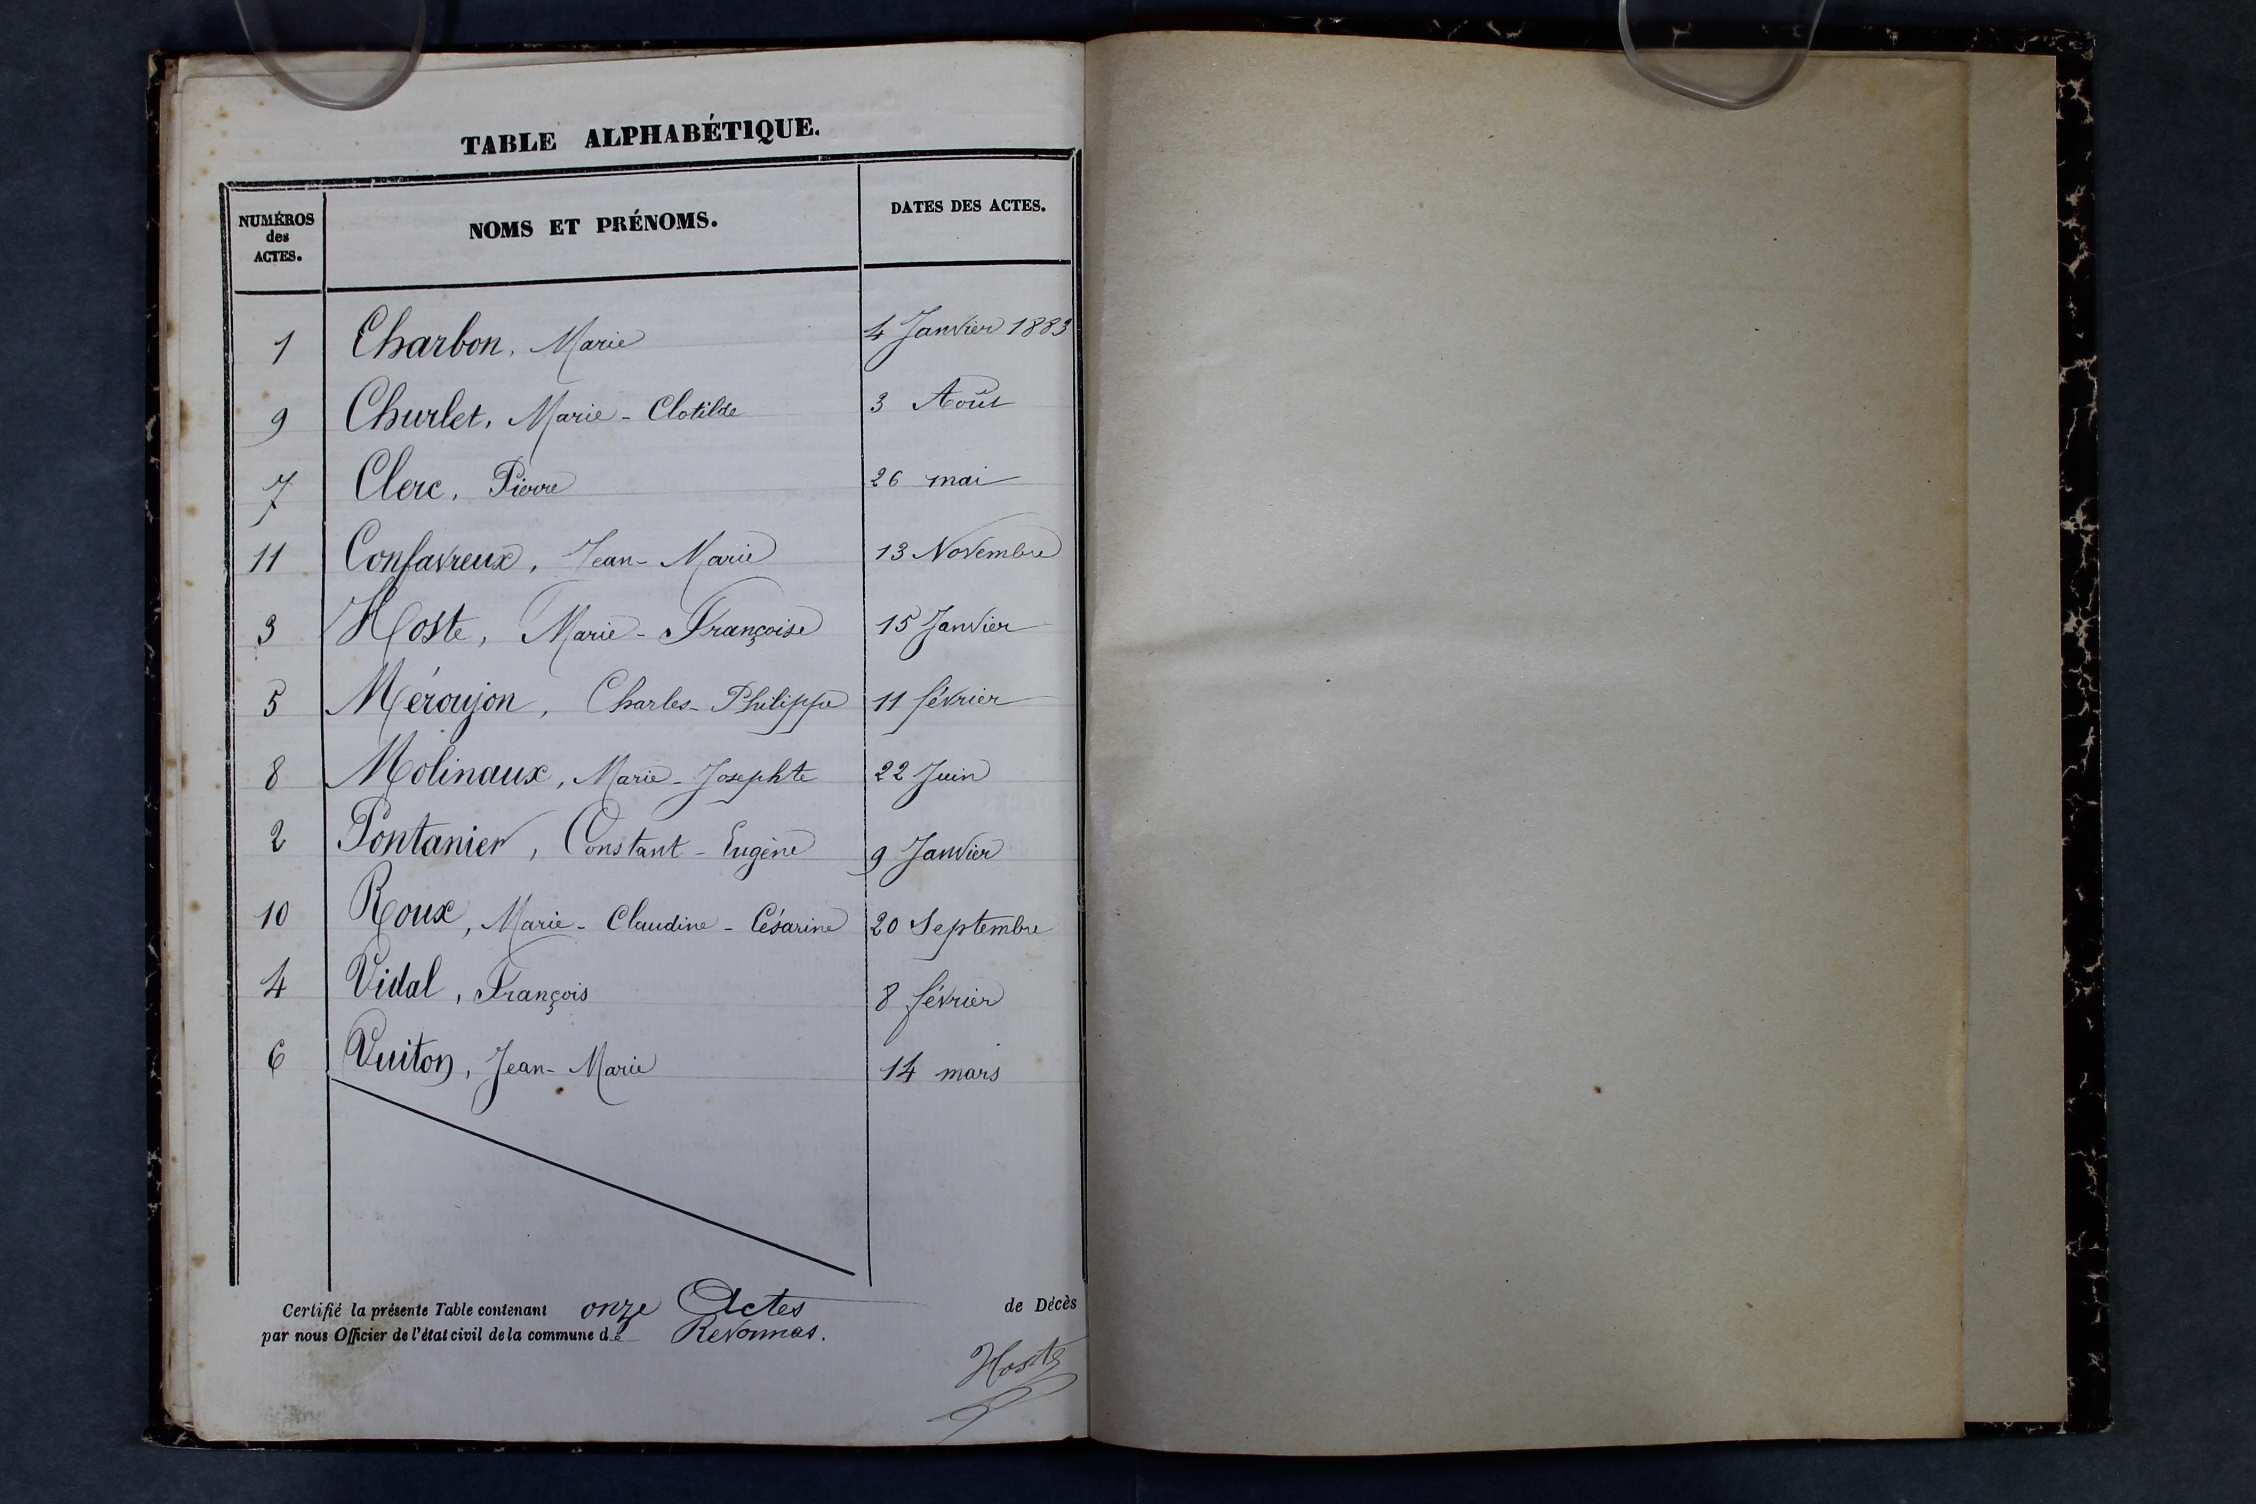 TABLE ALPHABÉTIQUE.
NUMÉROS
des
ACTES.
NOMS ET PRÉNOMS.
DATES DES ACTES.
1 Charbon, Marie 4 Janvier 1883
9 Churlet, Marie-Clotilde 3 Août
7 Clerc, Pierre 26 mai
11 Confavreux, Jean-Marie 13 Novembre
3 Hoste, Marie-Françoise 15 Janvier
5 Méroujon, Charles-Philippe 11 février
8 Molinaux, Marie-Josephte 22 Juin
2 Pontanier, Constant-Eugène 9 Janvier
10 Roux, Marie-Claudine-Césarine 20 Septembre
4 Vidal, François 8 février
6 Vuiton, Jean-Marie 14 mars
Certifié la présente Table contenant onze Actes de Décès
par nous Officier de l'état civil de la commune de Revonnas.
Hoste